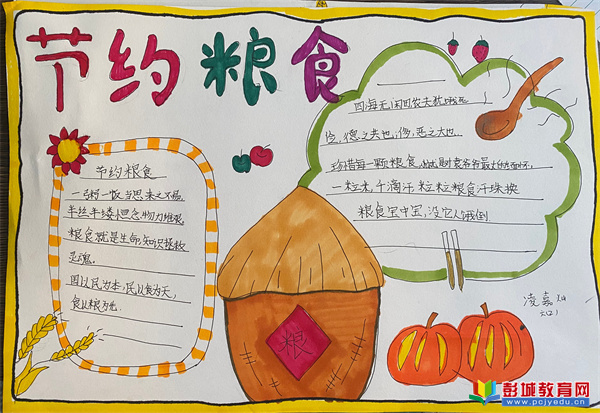 节约粮食
节约粮食
一粥一饭当思来之不易,
半丝半缕恒念物力维艰
粮食就是生命,知识拯救
灵魂.
国以民为本,民以食为天,
食以粮为先.
四海无闲田农夫犹饿死
俭,德之共也;侈,恶之大也.
珍惜每一颗粮食
一粒米,千滴汗 粒粒粮食汗珠换
粮食宝中宝,没它人饿倒
粮
凌嘉
六(2)
彭城教育网
www.pcjyedu.cn